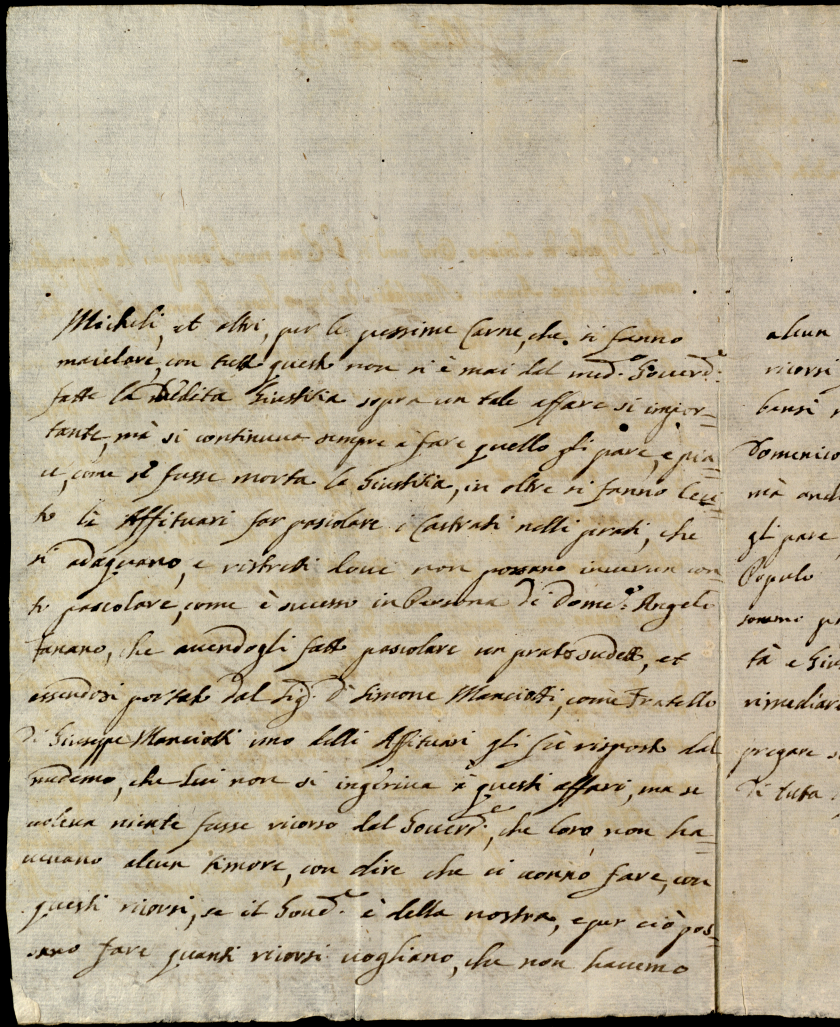 Micheli, et altri, per le pessime Carne, che si fanno
macelare, con tutt questo non si è mai dal med.o Gouer.re
fatte la Giustitia sopra un tale affare si impor=
tante, mà si continua sempre à fare quello gli pare, e pia=
ce, come se fusse morta la Giustitia, in oltre si fanno leci=
to li Affituari far pascolare i Castrati nelli prati, che
si adaquano, e ristretti doue non possano in uerun con
to pascolare, come è sucesso in Persona di Dome.co Angelo
Fanano, che auendogli fatto pascolare un prato sudetto, et
essendosi portato dal Sig.r Simone Manciotti, come Fratello
di Giuseppe Manciotti uno delli Affituari gli fù risposto dal
medemo, che Lui non si ingeriua à questi affari, ma se
uoleua niente fusse ricorso dal Gouer.re, che loro non ha=
ueuano alcun timore, con dire che ci uonno fare, con
questi ricorsi, se il Gou.re è della nostra, e per ciò pos=
sano fare quanti ricorsi uogliano, che non hauemo
alcun
ricorsi
Domenico
mà
gl pare
Popolo
tà e Giu
rimediare
pregare
di tuta